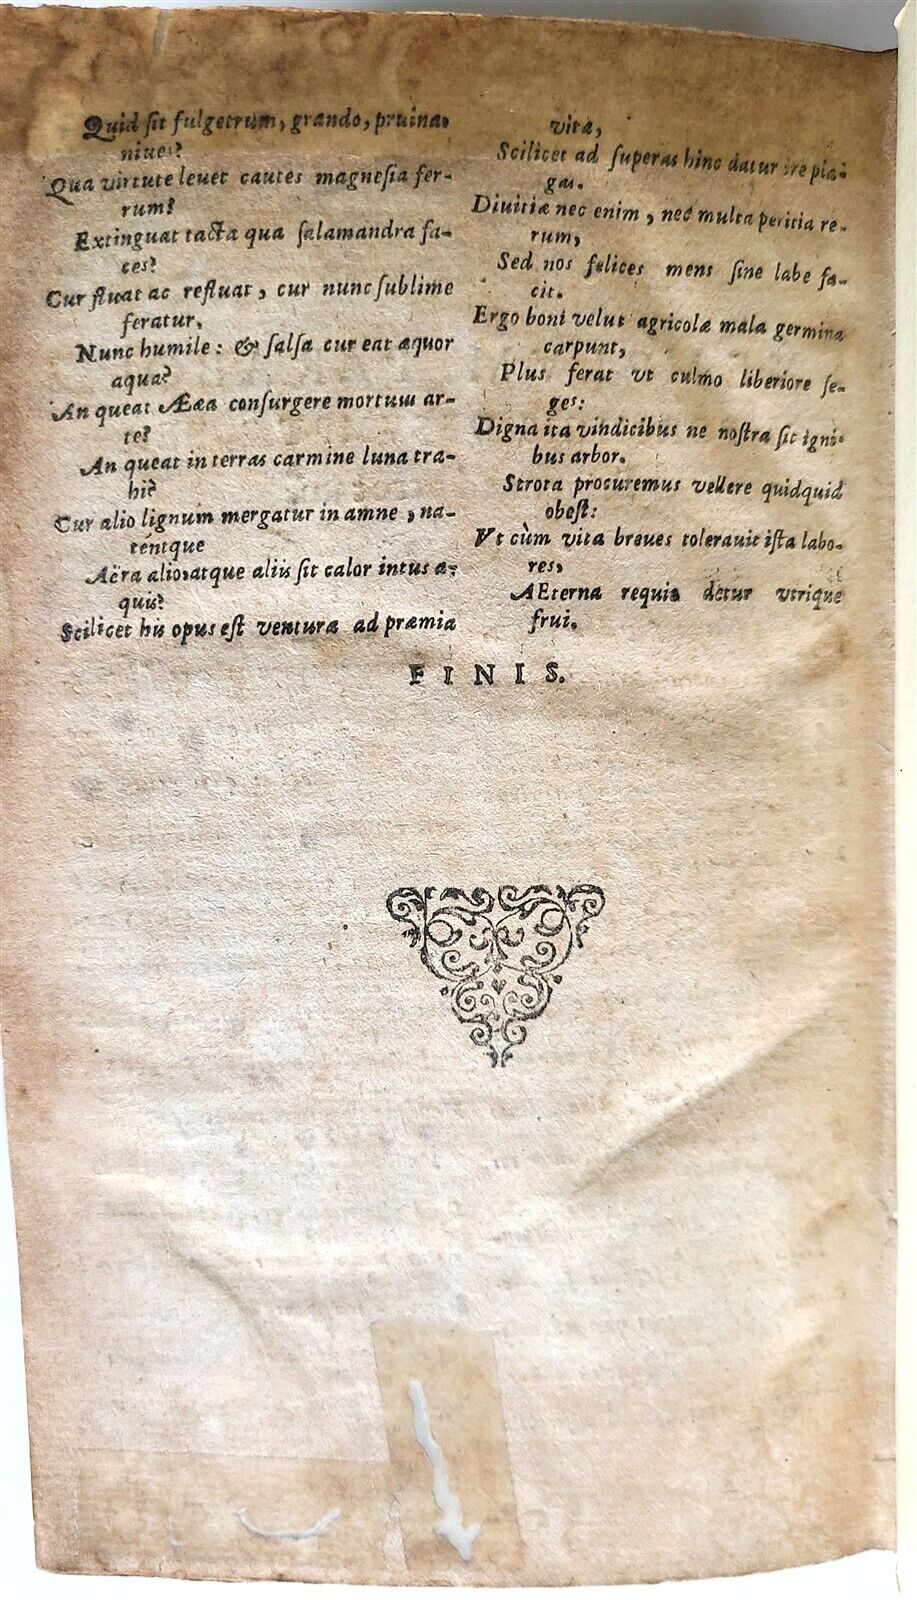 Quid sit fulgetrum, grando, pruina,
niues?
Qua virtute leuet cautes magnesia fer-
rum?
Extinguat tacta qua salamandra fa-
ces?
Cur fluat ac refluat, cur nunc sublime
feratur,
Nunc humile: & salsa cur eat æquor
aqua?
An queat Ææa consurgere mortuum ar-
te?
An queat in terras carmine luna tra-
hi?
Cur alio lignum mergatur in amne, na-
téntque
Aëra alio, atque aliis sit calor intus a-
quis?
Scilicet his opus est venturæ ad præmia
vitæ,
Scilicet ad superas hinc datur ire pla-
gas.
Diuitiæ nec enim, nec multa peritia re-
rum,
Sed nos felices mens sine labe fa-
cit.
Ergo boni velut agricolæ mala germina
carpunt,
Plus ferat vt culmo liberiore se-
ges:
Digna ita vindicibus ne nostra sit igni-
bus arbor.
Strota procuremus vellere quidquid
obest:
Vt cùm vita breues tolerauit ista labo-
res,
AEterna requie detur vtrique
frui.
FINIS.